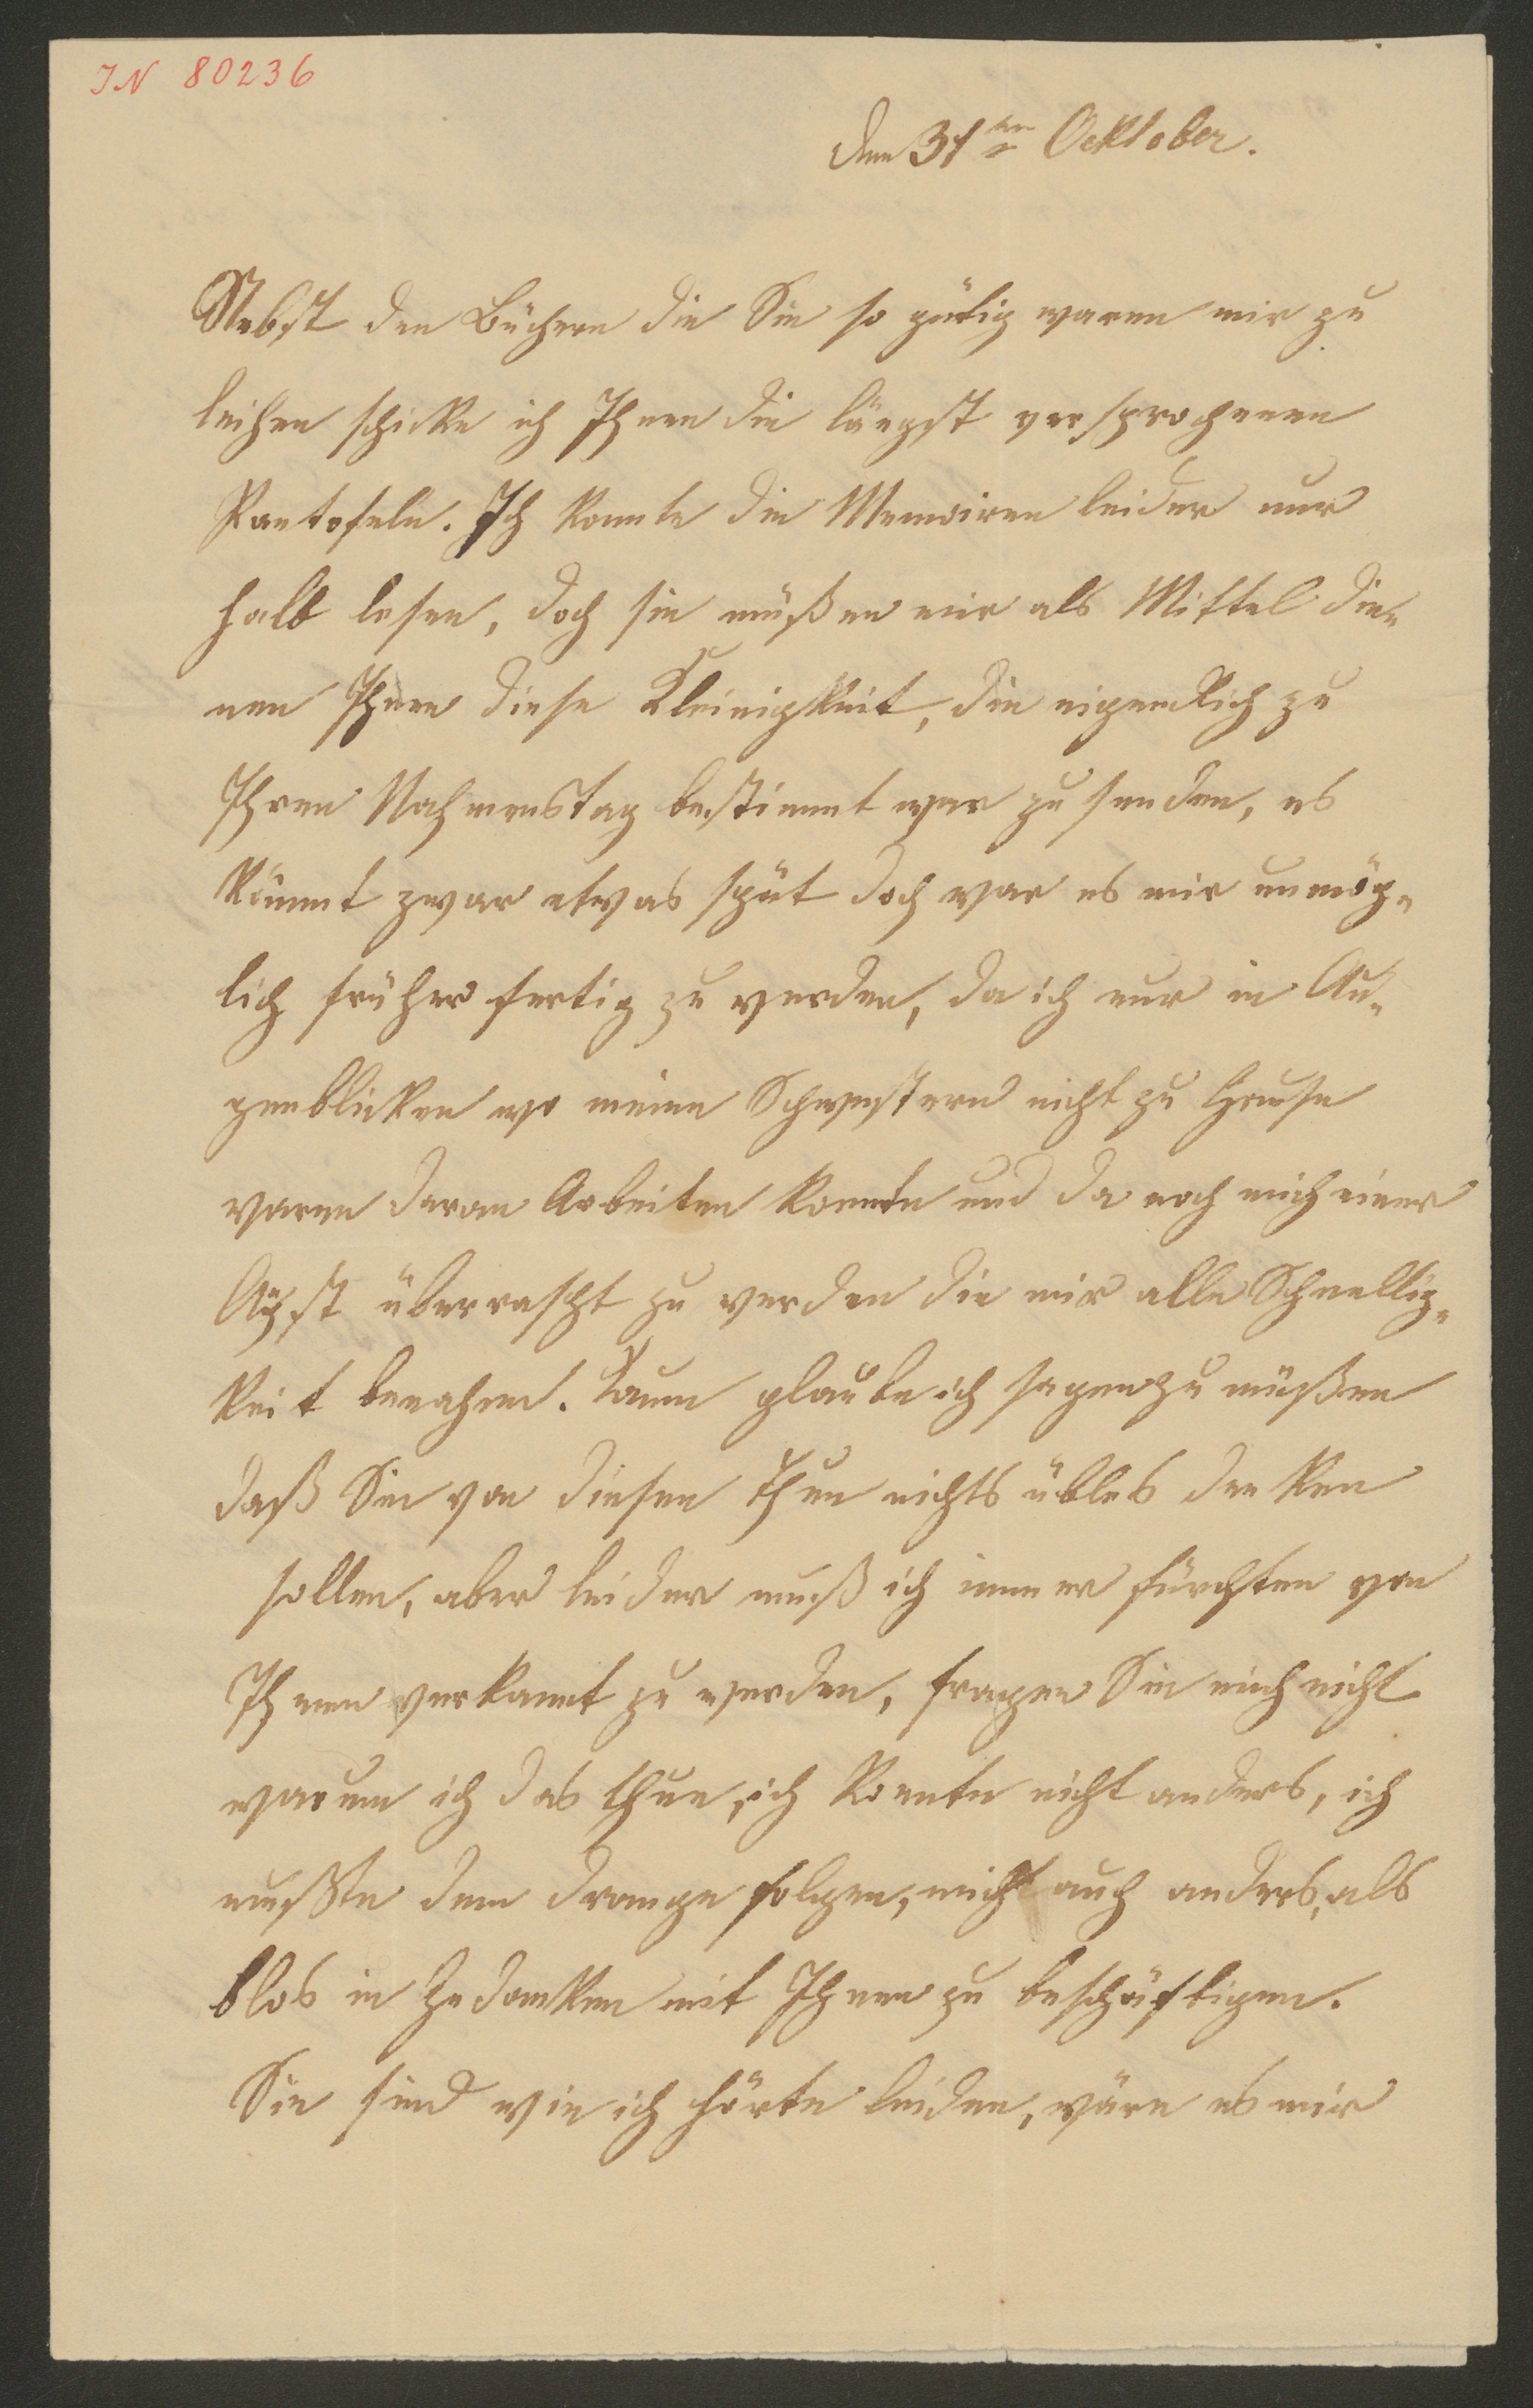 IN 80236
den 31ten Ocktober.
Nebst den Büchern die Sie so gütig waren mir zu
leihen schicke ich Ihnen die längst versprochenen
Pantofeln. Ich konnte die Memoiren leider nur
halb lesen, doch sie müßen mir als Mittel die-
nen Ihnen diese Kleinigkeit, die eigendlich zu
Ihren Nahmenstag bestimmt war zu senden, es
kömmt zwar etwas spät doch war es mir unmög-
lich früher fertig zu werden, da ich nur in Au-
genblicken wo meine Schwestern nicht zu Hause
waren daran Arbeiten konnte und da noch mich einer
Agst überrascht zu werden die mir alle Schnellig-
keit benahm. Kaum glaube ich sagen zu müßen
daß Sie von diesen Thun nichts übles denken
sollen, aber leider muß ich immer fürchten von
Ihnen verkannt zu werden, fragen Sie mich nicht
warum ich das thue, ich konnte nicht anders, ich
mußte dem drange folgen, mich auch anders, als
blos in Gedanken mit Ihnen zu beschäftigen.
Sie sind wie ich hörte leiden, wäre es mir